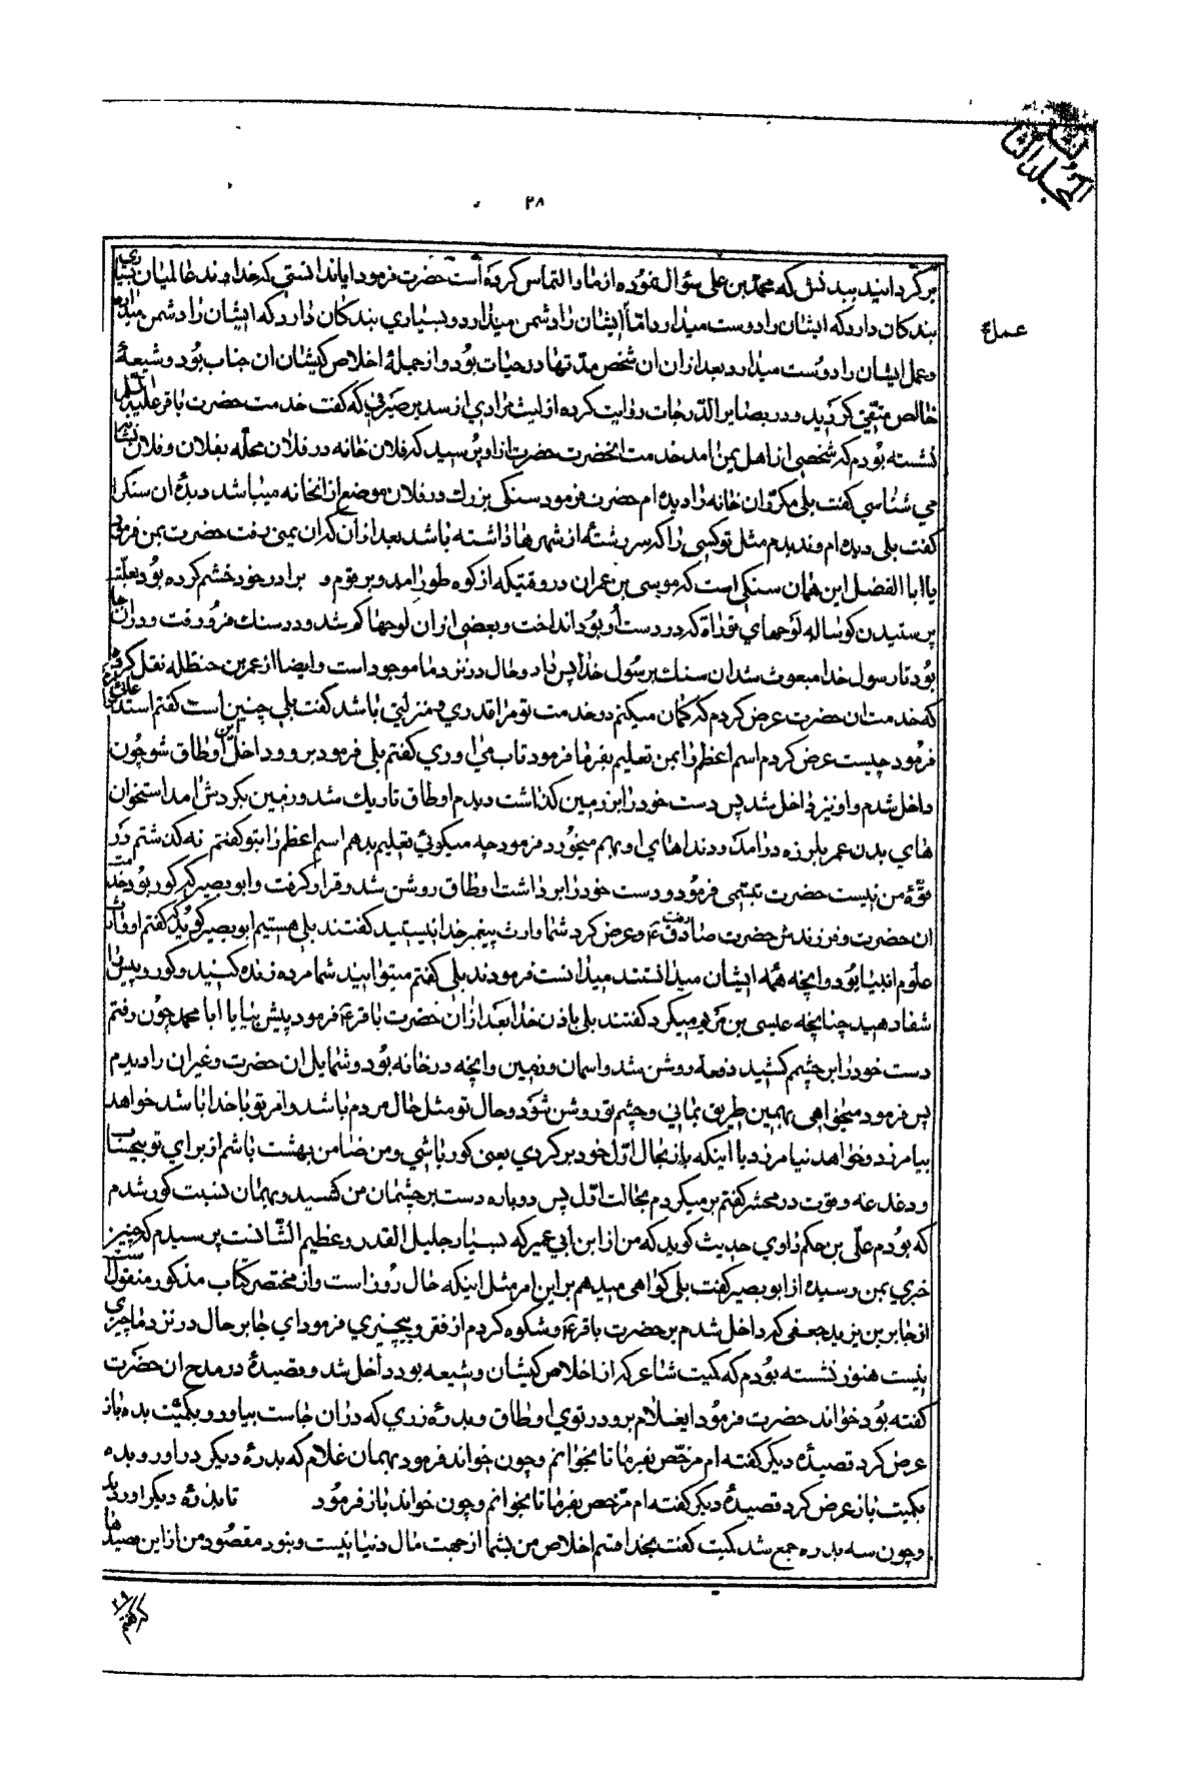 المجلد الثالث
۲۸
برگردانید ببدنش که محمد بن علی سؤال نموده از ما و التماس کرده است حضرت فرمود ایا ندانستی که خداوند عالمیان بسیاری
بندگان دارد که ایشان را دوست میدارد و اما ایشان را دشمن میدارد و بسیاری بندگان دارد که ایشان را دشمن میدارد
عمل ع
و عمل ایشان را دوست میدارد بعد از ان ان شخص مدتها در حیات بود و از جملهٔ اخلاص کیشان ان جناب بود و شیعهٔ
خالص متقی گردید و در بصایر الدرجات روایت کرده از لیث مرادی از سدیر صیرفی که گفت خدمت حضرت باقر علیه السلام
نشسته بودم که شخصی از اهل یمن امد خدمت انحضرت حضرت از او پرسید که فلان خانه در فلان محله بفلان و فلان نشانه
می شناسی گفت بلی مکرر ان خانه را دیده ام حضرت فرمود سنگی بزرك در فلان موضع از انخانه میباشد دیدهٔ ان سنگ را
گفت بلی دیده ام و ندیدم مثل تو کسی را که سر رشتهٔ از شهرها داشته باشد بعد از ان که ان یمنی رفت حضرت بمن فرمود
یا ابا الفضل این همان سنگی است که موسی بن عمران در وقتیکه از کوه طور امد و بر قوم و برادر خود خشم کرده بود بعلت
پرستیدن گوساله لوحهای توراة که در دست او بود انداخت و بعضی از ان لوحها گم شد و در سنك فرو رفت و در ان جا
بود تا رسول خدا مبعوث شد ان سنك بر رسول خدا پس داد و حال در نزد ما موجود است و ایضا از عمر بن حنظله نقل کرده
که خدمت ان حضرت عرض کردم که گمان میکنم در خدمت تو مرا قدری و منزلتی باشد گفت بلی چنین است گفتم استدعائی
فرمود چیست عرض کردم اسم اعظم را بمن تعلیم بفرما فرمود تاب می اوری گفتم بلی فرمود برو و داخل این اوطاق شو چون
داخل شدم و او نیز داخل شد پس دست خود را بر زمین گذاشت دیدم اوطاق تاریك شد و زمین بگردش امد استخوان
های بدن عمر بلرزه در امد و دندانهای او بهم میخورد فرمود چه میگوئی تعلیم بدهم اسم اعظم را بتو گفتم نه گذشتم در
قوهٔ من نیست حضرت تبسمی فرمود و دست خود را برداشت اوطاق روشن شد و قرار گرفت و ابو بصیر که کور بود خدمت
ان حضرت و فرزندش حضرت صادق ع رفت و عرض کرد شما وارث پیغمبر خدا نیستید گفتند بلی هستیم ابو بصیر گوید گفتم او وارث
علوم انبیا بود و انچه همه ایشان میدانستند میدانست فرمودند بلی گفتم میتوانید شما مرده زنده کنید و کور و پیس را
شفا دهید چنانچه عیسی بن مریم میکرد گفتند بلی باذن خدا بعد از ان حضرت باقر ع فرمود پیش بیا یا ابا محمد چون رفتم
دست خود را بر چشمم کشید دفعة روشن شد و اسمان و زمین و انچه در خانه بود و شمایل ان حضرت و غیر ان را دیدم
پس فرمود میخواهی بهمین طریق بمانی و چشم تو روشن شود و حال تو مثل حال مردم باشد و امر تو با خدا باشد خواهد
بیامرزد و خواهد نیامرزد یا اینکه باز بحال اول خود برگردی یعنی کور باشی و من ضامن بهشت باشم از برای تو بیحساب
و دغدغه و موت در محشر گفتم بر میگردم بحالت اول پس دوباره دست بر چشمان من کشید و بهمان نسبت کور شدم
که بودم علی بن حکم راوی حدیث گوید که من از ابن ابی عمیر که بسیار جلیل القدر و عظیم الشانست پرسیدم که چنین
خبری بمن رسیده از ابو بصیر گفت بلی گواهی میدهم بر این امر مثل اینکه حال روز است و از مختصر کتاب مذکور منقولست
از جابر بن یزید جعفی که داخل شدم بر حضرت باقر ع و شکوه کردم از فقر و بیچیزی فرمود ای جابر حال در نزد ما چیزی
نیست هنوز نشسته بودم که کمیت شاعر که از اخلاص کیشان و شیعه بود داخل شد و قصیدهٔ در مدح ان حضرت
گفته بود خواند حضرت فرمود ایغلام برو در توی اوطاق و بدرهٔ زری که در ان جاست بیاور و بکمیت بده باز
عرض کرد قصیدهٔ دیگر گفته ام مرخص بفرما تا بخوانم و چون خواند فرمود بهمان غلام که بدرهٔ دیگر در اور و بده
بکمیت باز عرض کرد قصیدهٔ دیگر گفته ام مرخص بفرما تا بخوانم و چون خواند باز فرمود تا بدرهٔ دیگر اوردند
و چون سه بدره جمع شد کمیت گفت بخدا قسم اخلاص من بشما از جهت مال دنیا نیست و نبود مقصود من از این قصیدها